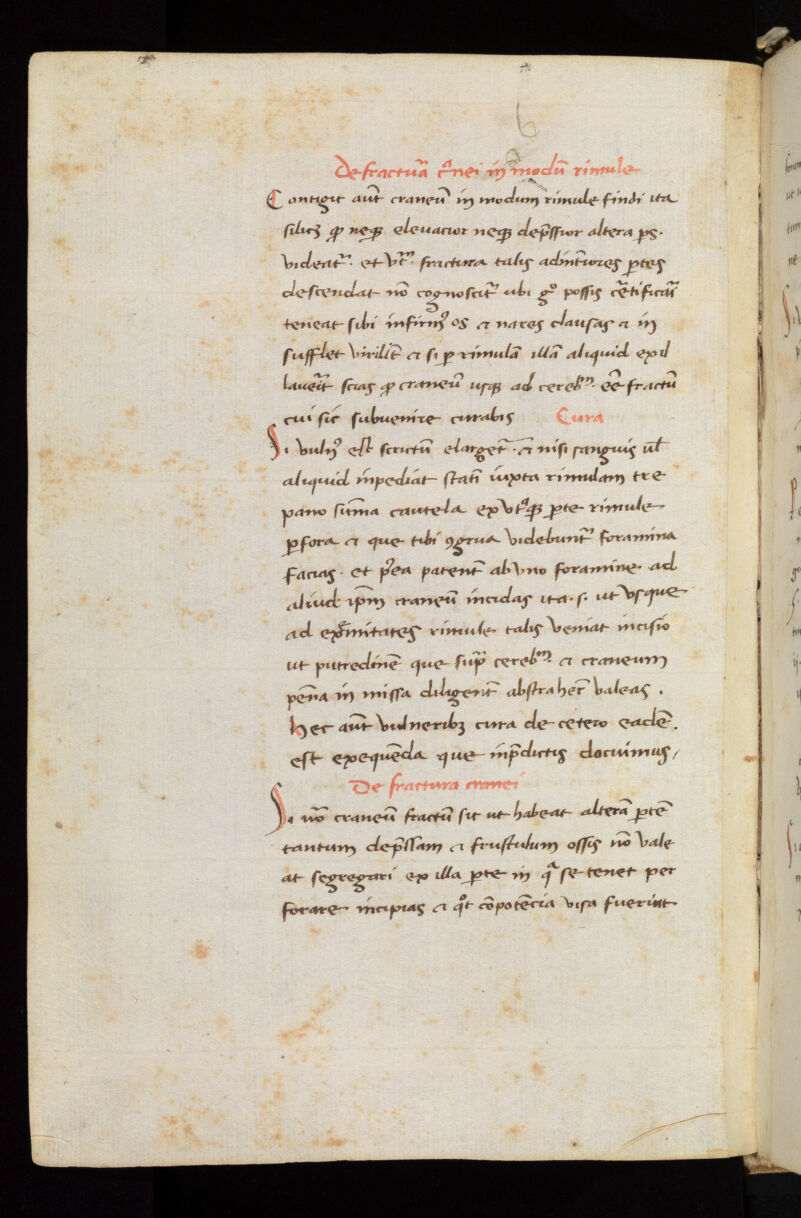 De fractũa cͣnei in modũ rimule
Contigit aũt craneũ in modum rimule findi ita
silicꝫ ꝙ neqꝫ elevacior neqꝫ dep̃ssior altera ps̃.
videatᷣ. et vtᷣ. fractura talis ad inᷣtiores ꝑtes
descendat nõ cognoscitᷣ ubi gͦ possis cᷣtificãi
teneat sibi infirmꝰ os ⁊ nares clausas ⁊ in
sufflet virilitᷣ ⁊ si ꝑ rimulã illã aliquid exil
laverit scias ꝙ craneũ usqꝫ ad cerebᷣͫ. eẽ fractũ
cui sic subvenire curabis Cura
Si vulnꝰ est strictũ elargetᷣ. ⁊ nisi sanguis ul̃
aliquid inpediat statĩ iuxta rimulam tre
pano sum̃a cautela ex utͣqꝫ ꝑte rimule
ꝑfora ⁊ que tibi ꝯgrua videbuntᷣ foramina
facias. et p̃ea patent̃ ab uno foramine. ad
aliud ip̃m craneũ incidas ita. s. ut vsque
ad ext̃mitates rimule talis veniat incisio
ut putredinẽ que sup̃ cerebᷣͫ ⁊ craneum
pẽna in missa diligent̃ abstraher̃ valeas.
Hec aũt vulneribꝫ cura de cetero eadẽ.
est exequẽda que inp̃dictis docuimus/
De fractura cranei
Si u͂o craneũ fractũ sit ut habeat alterã ꝑtẽ
tantum dep̃ssam ⁊ frustulum ossis nõ vale
at segregari ex illa ꝑte in qͣ se tenet per
forare incipias ⁊ qͦt cõpotẽcia visa fuerint